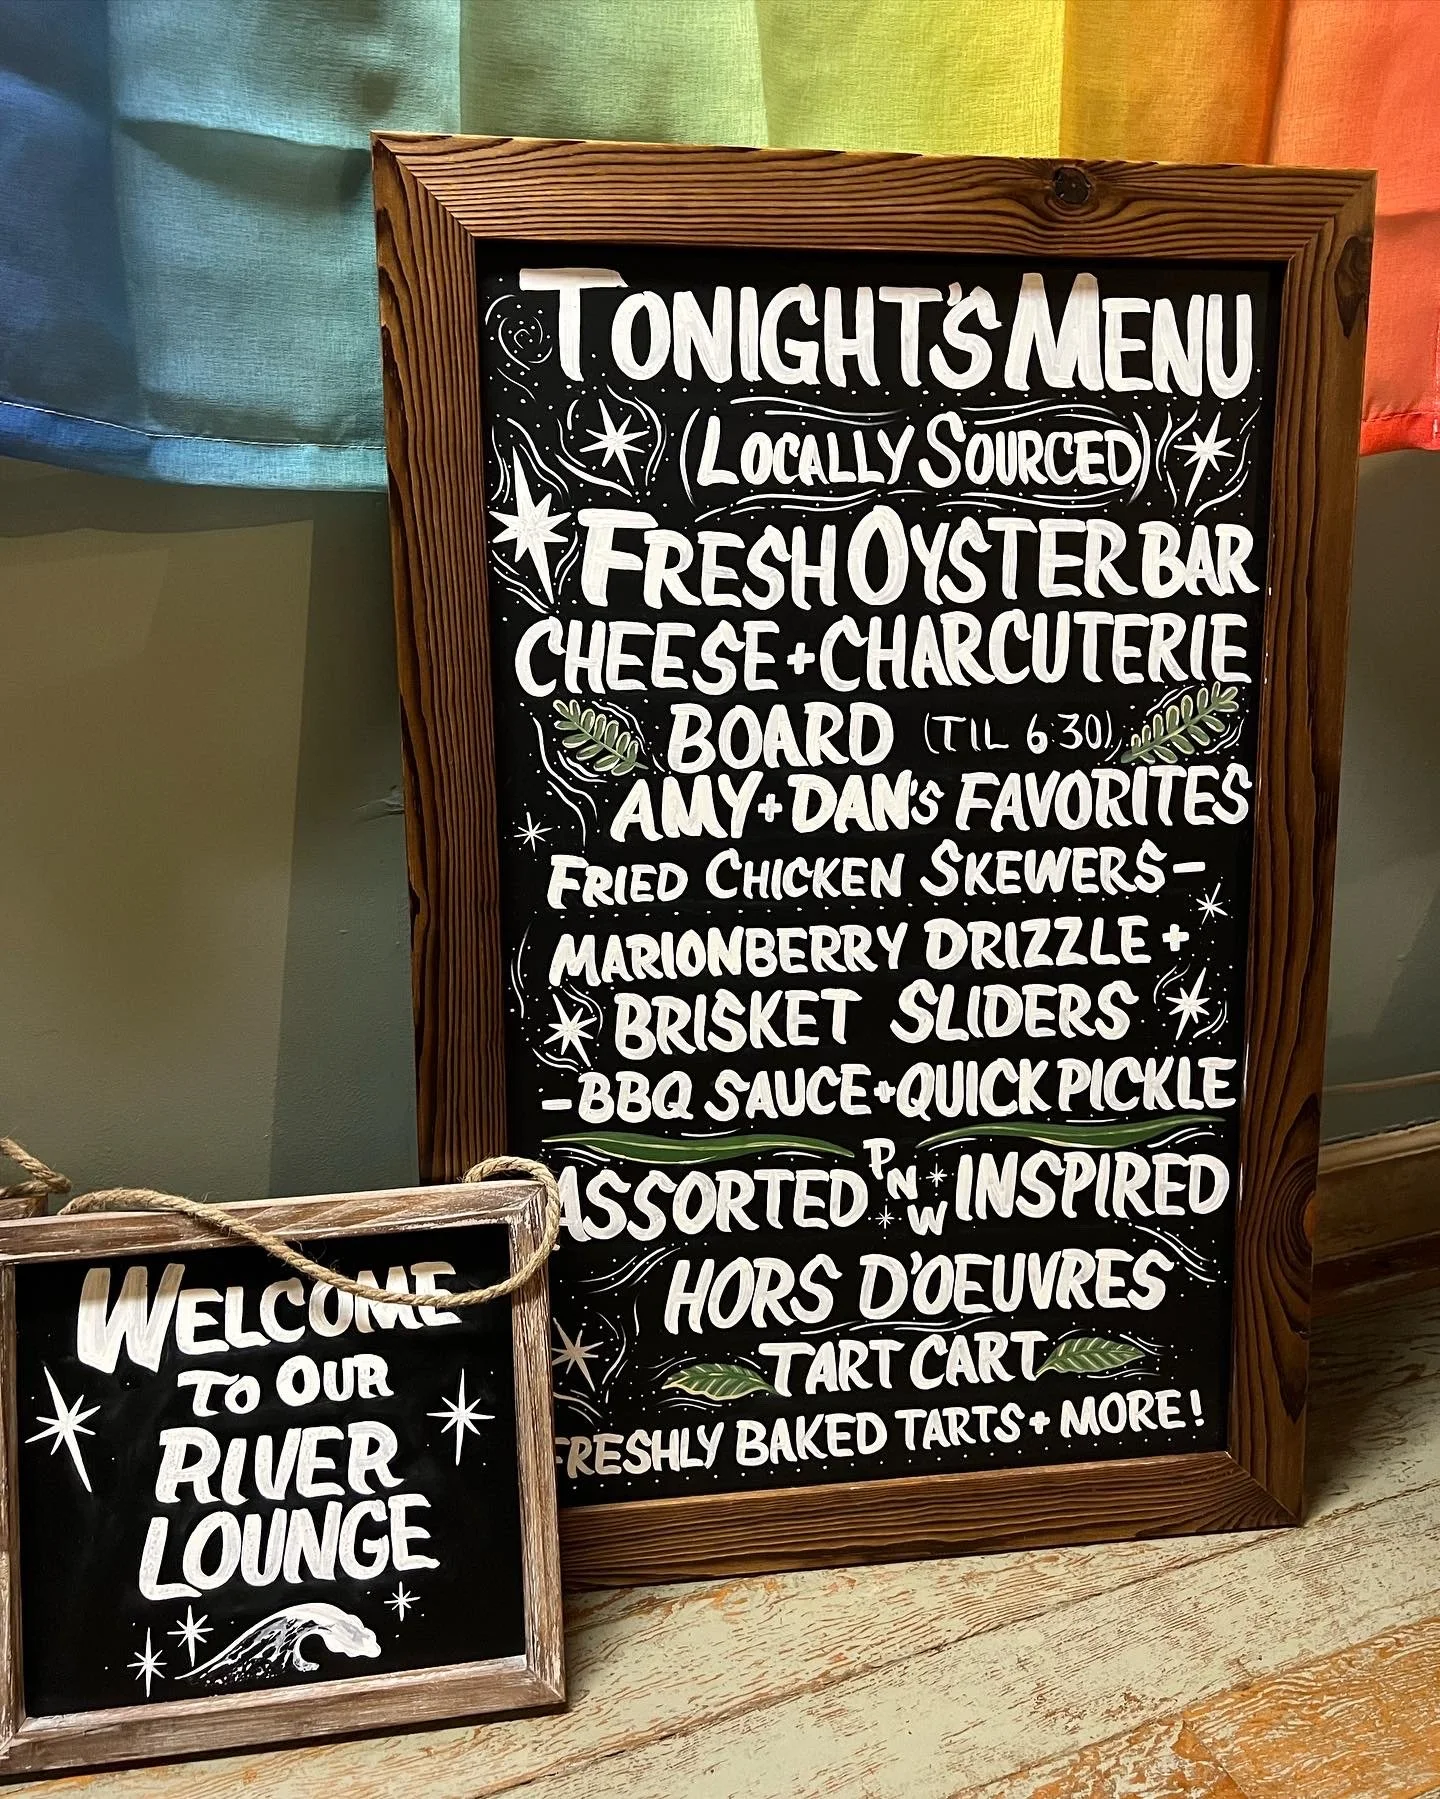 TONIGHT'S MENU
(LOCALLY SOURCED)
FRESH OYSTER BAR
CHEESE + CHARCUTERIE
BOARD (TIL 6:30)
AMY + DAN'S FAVORITES
FRIED CHICKEN SKEWERS -
MARIONBERRY DRIZZLE +
BRISKET SLIDERS
- BBQ SAUCE + QUICK PICKLE
ASSORTED PNW INSPIRED
HORS D'OEUVRES
TART CART
FRESHLY BAKED TARTS + MORE!
WELCOME
TO OUR
RIVER
LOUNGE